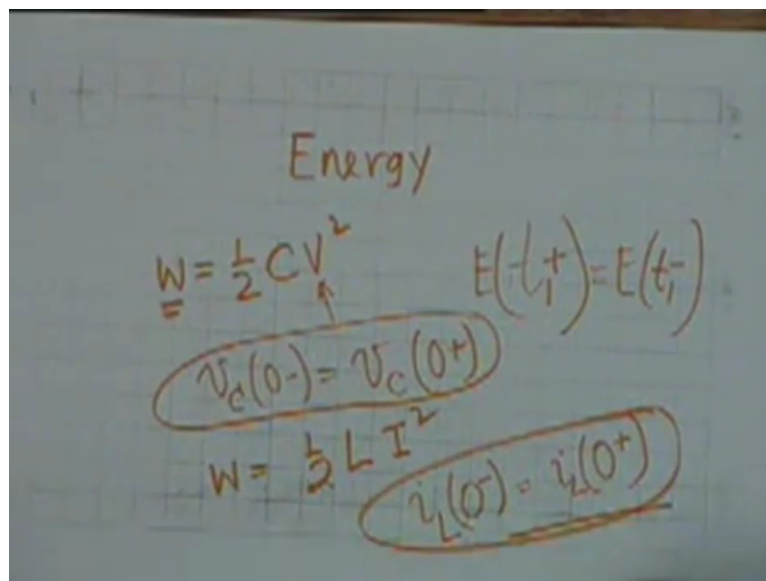 Energy
W = 1/2 CV²
E(t₁⁺) = E(t₁⁻)
v_C(0-) = v_C(0+)
W = 1/2 L I²
i_L(0⁻) = i_L(0⁺)